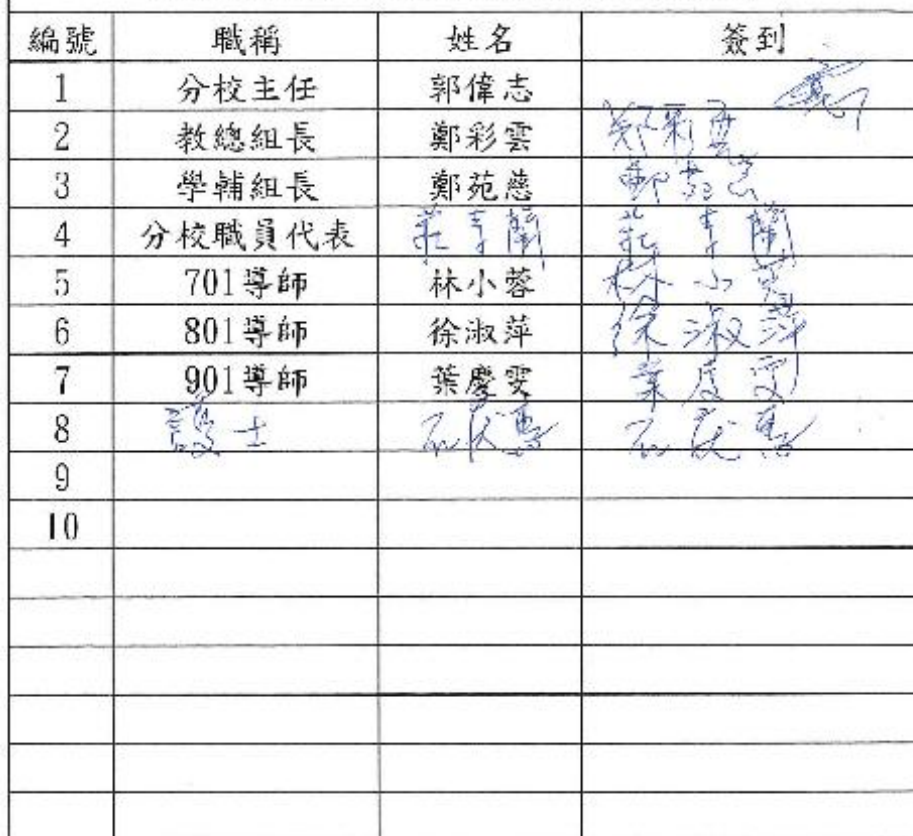 編號 職稱 姓名 簽到
1 分校主任 郭偉志
2 教總組長 鄭彩雲 鄭彩雲
3 學輔組長 鄭苑慈 鄭苑慈
4 分校職員代表 莊 蘭 莊 蘭
5 701導師 林小蓉 林小蓉
6 801導師 徐淑萍 徐淑萍
7 901導師 葉慶雯 葉慶雯
8 護士 石 石
9
10